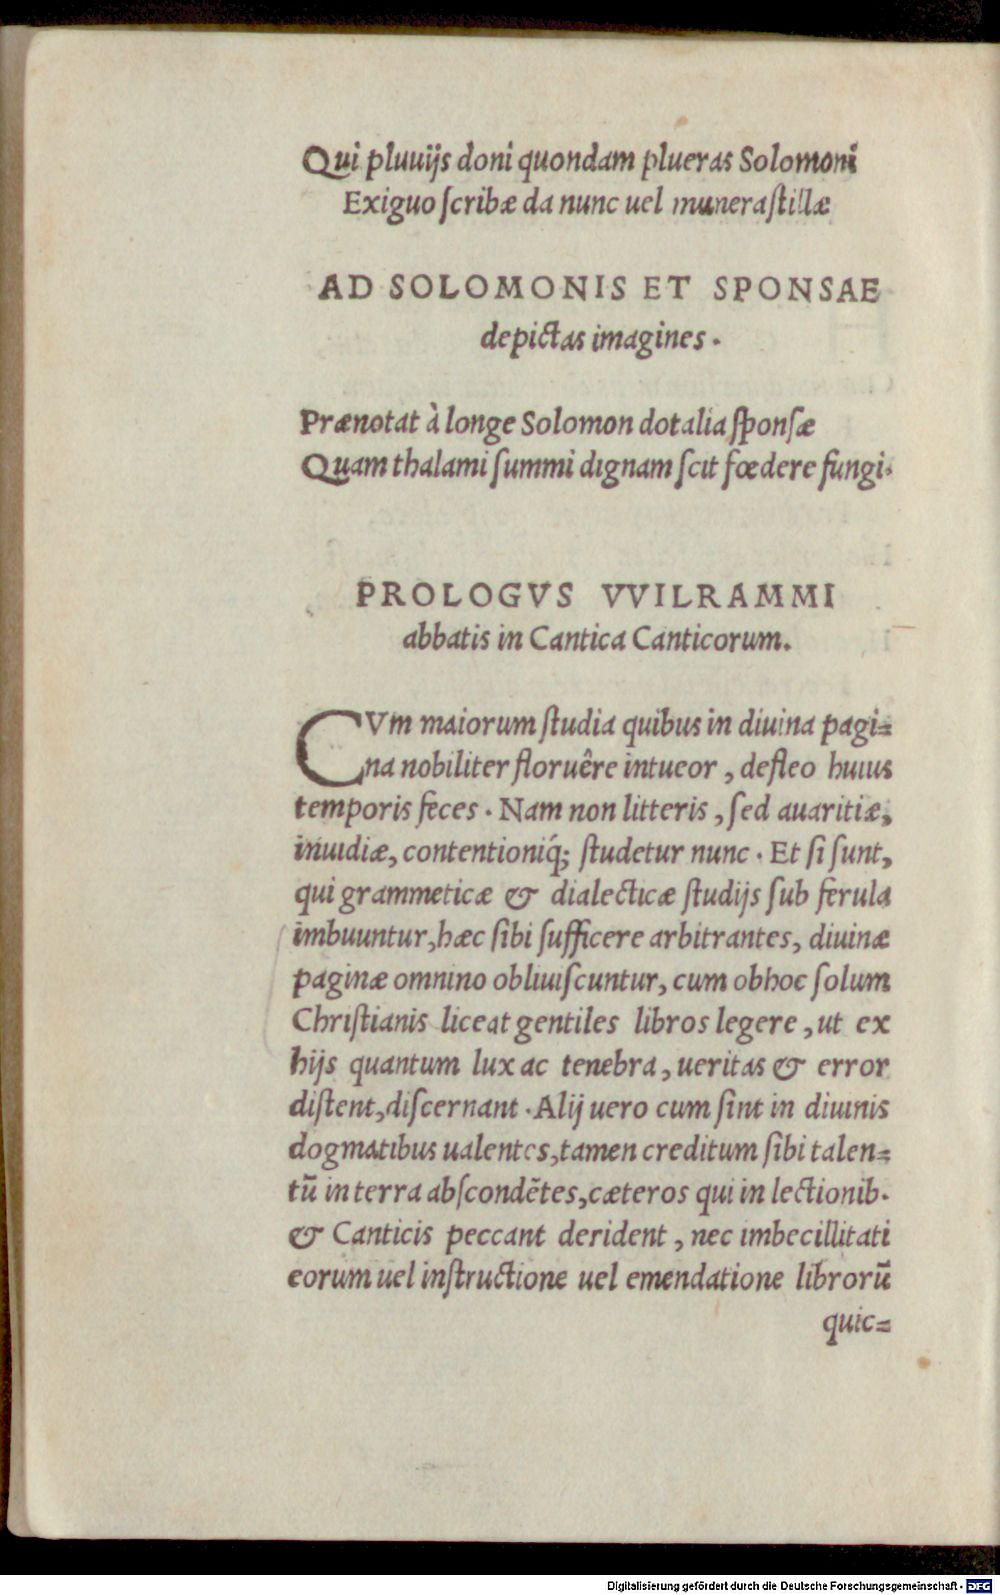 Qui pluuijs doni quondam plueras Solomoni
Exiguo ſcribæ da nunc uel munera ſtillæ
AD SOLOMONIS ET SPONSAE
depictas imagines.
Prænotat à longe Solomon dotalia ſponſæ
Quam thalami ſummi dignam ſcit fœdere fungi.
PROLOGVS VVILRAMMI
abbatis in Cantica Canticorum.
CVm maiorum ſtudia quibus in diuina pagi=
na nobiliter floruêre intueor, defleo huius
temporis feces. Nam non litteris, ſed auaritiæ,
inuidiæ, contentioniq́; ſtudetur nunc. Et ſi ſunt,
qui grammeticæ & dialecticæ ſtudijs ſub ferula
imbuuntur, hæc ſibi ſufficere arbitrantes, diuinæ
paginæ omnino obliuiſcuntur, cum obhoc ſolum
Chriſtianis liceat gentiles libros legere, ut ex
hijs quantum lux ac tenebra, ueritas & error
diſtent, diſcernant. Alij uero cum ſint in diuinis
dogmatibus ualentes, tamen creditum ſibi talen=
tū in terra abſcondētes, cæteros qui in lectionib.
& Canticis peccant derident, nec imbecillitati
eorum uel inſtructione uel emendatione librorū
quic=
Digitalisierung gefördert durch die Deutsche Forschungsgemeinschaft - DFG